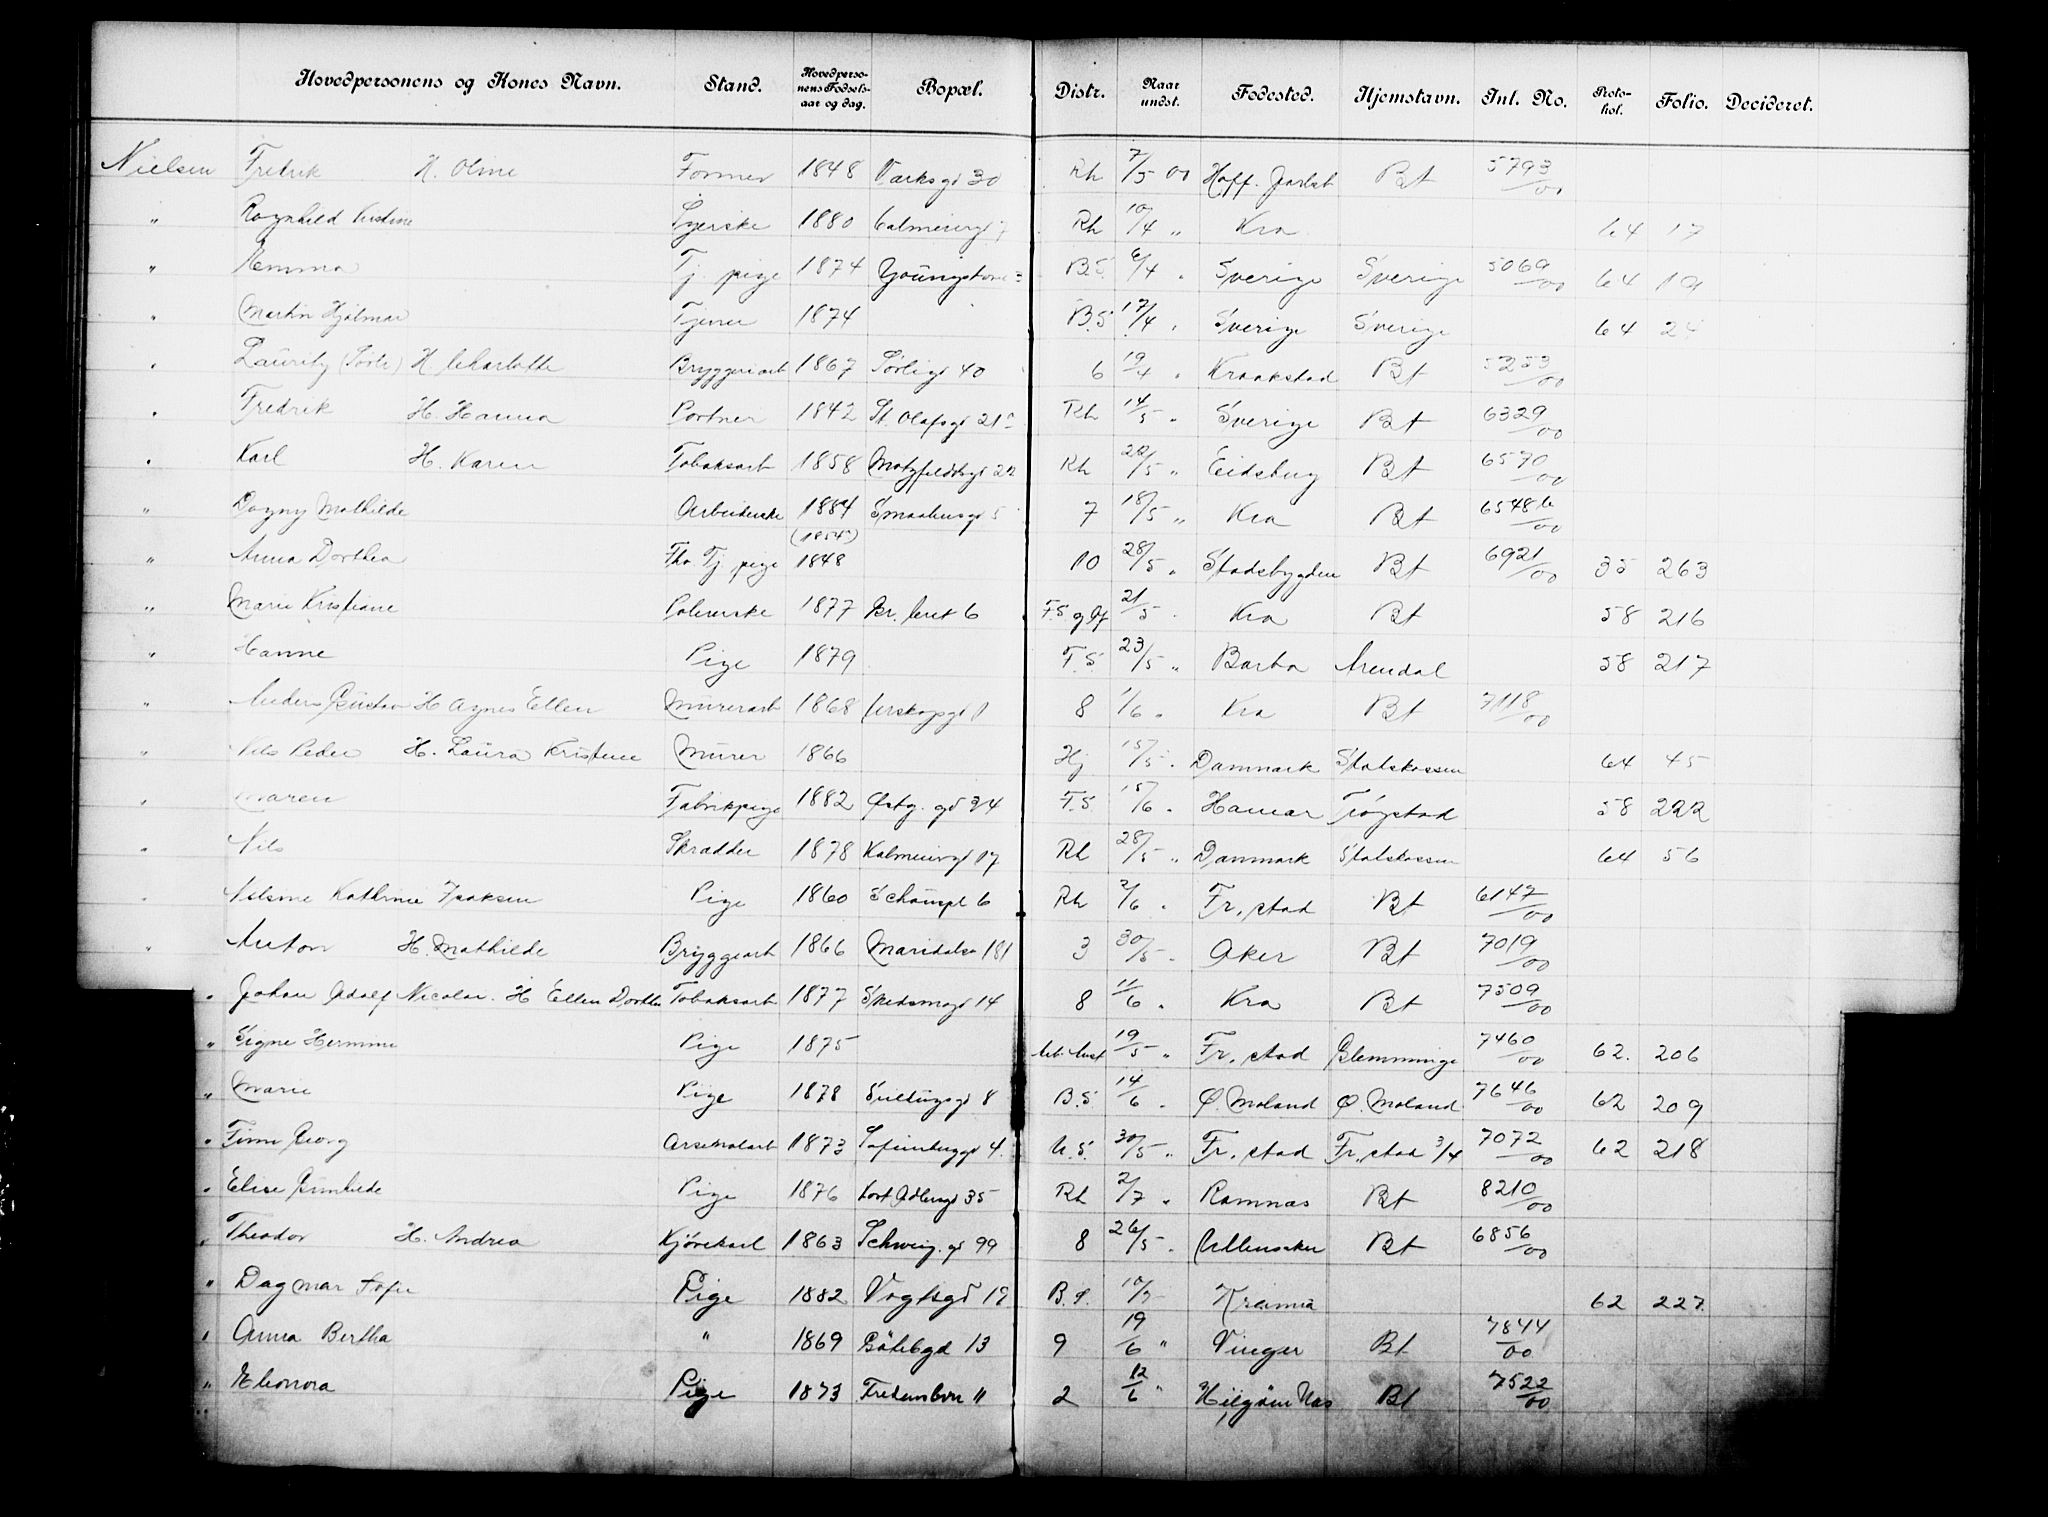 Hovedpersonens og Kones Navn. Stand. Hovedpersonens Fødselsaar og dag. Bopæl. Distr. Naar undst. Fødested. Hjemstavn. Int. No. Protokol. Folio. Decideret.
Nielsen Fredrik H. Oline Former 1848 Varksgd 30 Rh 7/5 00 Hoff. Bt 5793/00
" Ragnhild Kristine Syerske 1880 Rh 10/4 " Kra 64 17
" Emma Tj. pige 1874 B.S. 6/4 " Sverige Sverige 5069/00 64 19
" Martin Hjalmar Tjener 1874 B.S 17/4 " Sverige Sverige 64 24
" Lauritz H. Charlotte Bryggeriarb 1867 Sørligt 40 6 19/4 " Kraakstad Bt 5253/00
" Fredrik H. Hanna Portner 1842 St. Olafsgd 21 Rh 14/5 " Sverige Bt 6329/00
" Karl H. Karen Tobaksarb 1858 Motzfeldtsgd 22 Rh 22/5 " Eidsberg Bt 6570/00
" Dagny Mathilde Arbeiderske 1884 Smaalensgd 5 7 18/5 " Kra Bt 6548 b/00
" Anna Dorthea Fhv Tj. pige (1854) 1848 10 28/5 " Stadsbygden Bt 6921/00 35 263
" Marie Kristiane Polererske 1877 6 F.S 21/5 " Kra Bt 58 216
" Hanne Pige 1879 F.S 23/5 " Barbo Arendal 58 217
" Anders Gustav H. Agnes Ellen Murerarb 1868 8 1/6 " Kra Bt 7118/00
" Nils Peder H. Laura Kristine Murer 1866 Hj 15/5 " Danmark Statskassen 64 45
" Maren Fabrikpige 1882 Østg. gd 34 F.S. 15/6 " Hamar Trøgstad 58 222
" Nils Skrædder 1878 Kalmeiergd 17 Rh 28/5 " Danmark Statskassen 64 56
" Nilsine Kathrine Isaksen Pige 1860 Schouspl 6 Rh 2/6 " Fr.stad Bt 6147/00
" Anton H. Mathilde Bryggearb 1866 Maridalsv 181 3 30/5 " Aker Bt 7019/00
" Johan Adolf Nicolai. H Ellen Dorthea Tobaksarb 1877 Skedsmogd 14 8 11/6 " Kra Bt 7509/00
" Signe Hermine Pige 1875 Arb. Anst 19/5 " Fr.stad Glemminge 7460/00 62. 206
" Marie Pige 1878 8 B.S. 14/6 " Ø. Moland Ø. Moland 7646/00 62 209
" Finn Georg Arsenalarb 1873 Sofienberggd 4. U.S. 30/5 " Fr.stad Fr.stad 3/4 7072/00 62 218
" Elise Gunhilde Pige 1876 Cort Adlersgd 35 Rh 2/7 " Ramnæs Bt 8210/00
" Theodor H. Andrea Kjørekarl 1863 Schweig. gd 99 8 26/5 " Ullensaker Bt 6856/00
" Dagmar Sofie Pige 1882 Vogtsgd 19 B.S. 10/7 Kra 62 227
" Anna Bertha " 1869 Gøtebgd 13 9 19/6 " Vinger Bt 7844/00
" Eleonora Pige 1873 Fredensborv 11 2 12/6 " Bt 7522/00